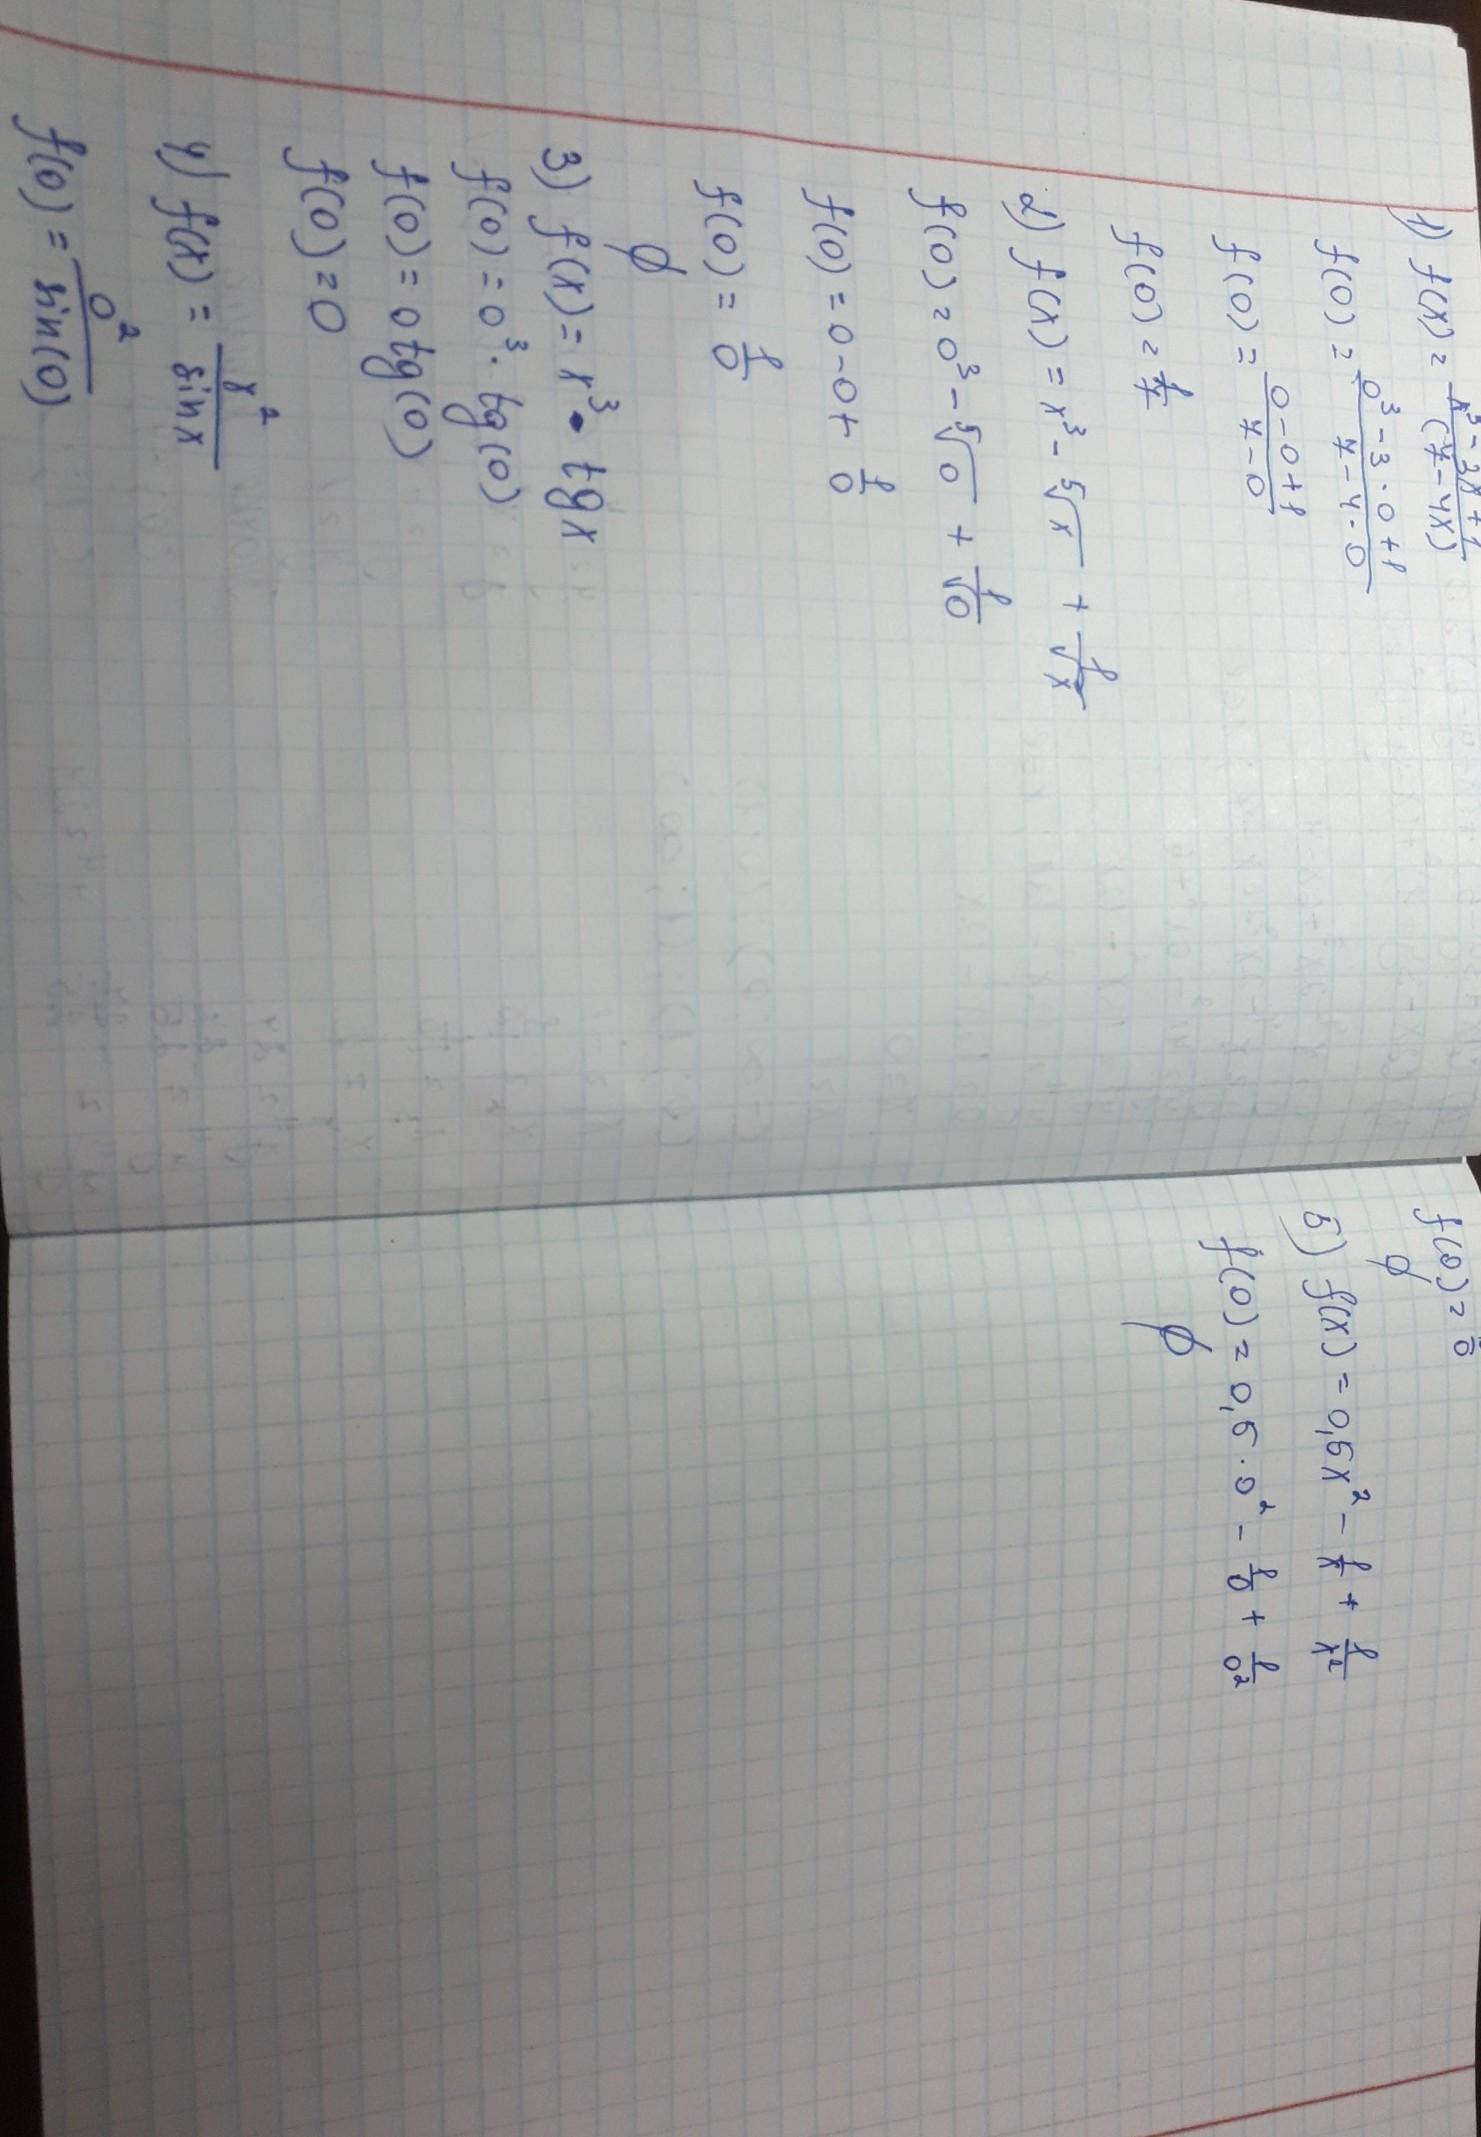 1) f(x) = \frac{x^3 - 3x + 1}{(7 - 4x)}
f(0) = \frac{0^3 - 3 \cdot 0 + 1}{7 - 4 \cdot 0}
f(0) = \frac{0 - 0 + 1}{7 - 0}
f(0) = \frac{1}{7}
2) f(x) = x^3 - \sqrt[5]{x} + \frac{1}{\sqrt{x}}
f(0) = 0^3 - \sqrt[5]{0} + \frac{1}{\sqrt{0}}
f(0) = 0 - 0 + \frac{1}{0}
f(0) = \frac{1}{0}
∅
3) f(x) = x^3 • tg x
f(0) = 0^3 \cdot tg(0)
f(0) = 0 tg(0)
f(0) = 0
4) f(x) = \frac{x^2}{sin x}
f(0) = \frac{0^2}{sin(0)}
f(0) = \frac{}{0}
∅
5) f(x) = 0,5x^2 - \frac{1}{x} + \frac{1}{x^2}
f(0) = 0,5 \cdot 0^2 - \frac{1}{0} + \frac{1}{0^2}
∅